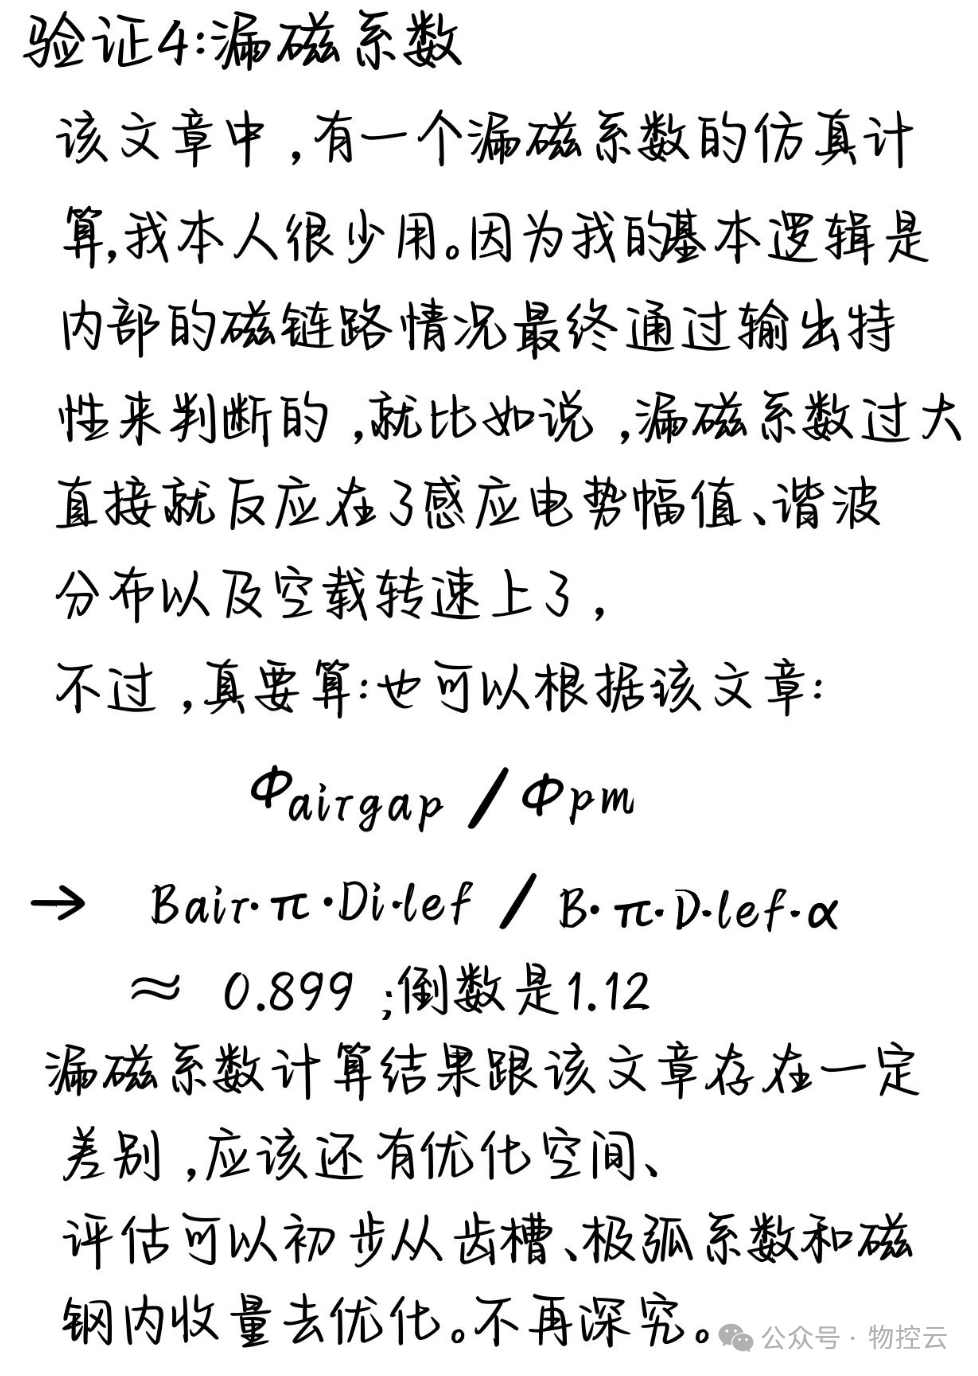 验证4:漏磁系数
该文章中,有一个漏磁系数的仿真计
算,我本人很少用。因为我的基本逻辑是
内部的磁链路情况最终通过输出特
性来判断的,就比如说,漏磁系数过大
直接就反应在了感应电势幅值、谐波
分布以及空载转速上了,
不过,真要算:也可以根据该文章:
Φairgap / Φpm
→ Bair·π·Di·lef / B·π·D·lef·α
≈ 0.899 ;倒数是1.12
漏磁系数计算结果跟该文章存在一定
差别,应该还有优化空间、
评估可以初步从齿槽、极弧系数和磁
钢内收量去优化。不再深究。
公众号·物控云